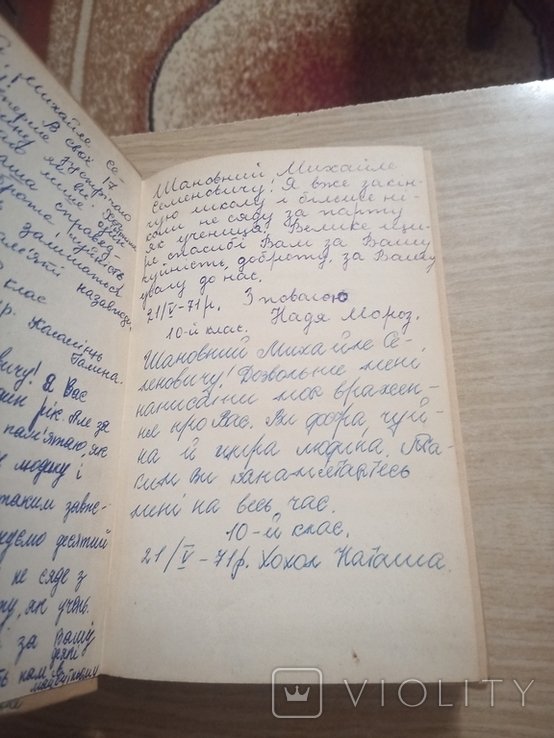 Михайле Се
В своє 17
зустрічаю
яв
ви
лише один
Ваша справед-
доброта, чуйність
залишаться
пам'яті назавжди.
клас
Галина.
вичу! Я Вас
рік. Але за
пам'ятаю, як
людину і
таким завже-
десятий
не сяде з
ту, як учень.
і за Вашу
Шановний Михайле
Семеновичу! Я вже закін-
чую школу і більше ні-
коли не сяду за парту
як учениця. Велике щи-
ре спасибі Вам за Вашу
чуйність, доброту, за Вашу
увагу до нас.
21/V-71р. З повагою
10-й клас. Надя Мороз.
Шановний Михайле Се-
меновичу! Дозвольте мені
написати моє вражен-
ня про Вас. Ви добра, чуй-
на й щира людина. Та-
ким Ви запам'ятаєтесь
мені на весь час.
10-й клас.
21/V-71р. Хохол Наташа.
VIOLITY